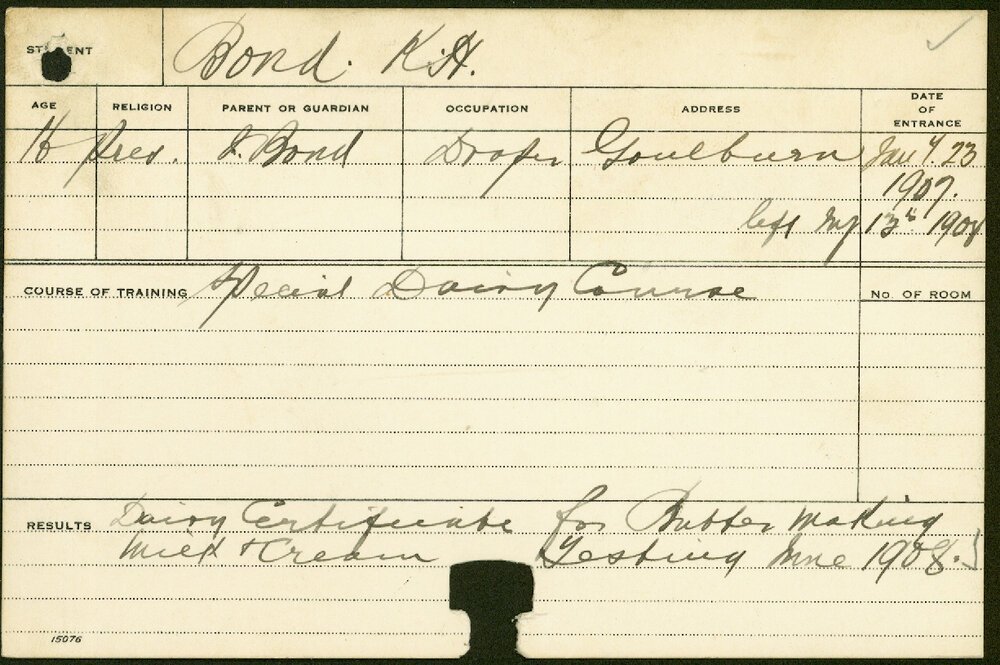 STUDENT Bond. K.H.
AGE RELIGION PARENT OR GUARDIAN OCCUPATION ADDRESS DATE OF ENTRANCE
16 Pres. Bond Draper Goulburn Jany. 23
1907.
left 13th 1908
COURSE OF TRAINING Special Dairy Course
No. OF ROOM
RESULTS Dairy Certificate for Butter Making
Milk & Cream Testing June 1908.
15076